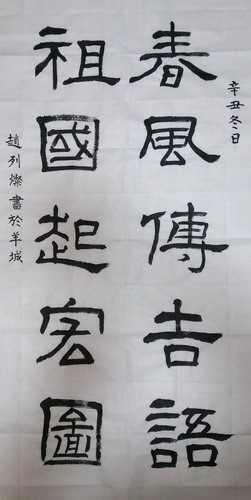 辛丑冬日
春風傳吉語
祖國起宏圖
趙列燦書於羊城